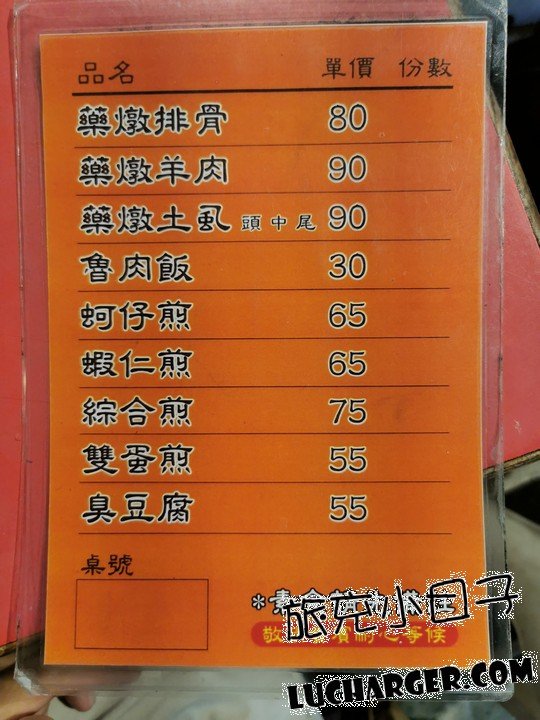 品名 單價 份數
藥燉排骨 80
藥燉羊肉 90
藥燉土虱 頭中尾 90
魯肉飯 30
蚵仔煎 65
蝦仁煎 65
綜合煎 75
雙蛋煎 55
臭豆腐 55
桌號
旅充小日子
LUCHARGER.COM